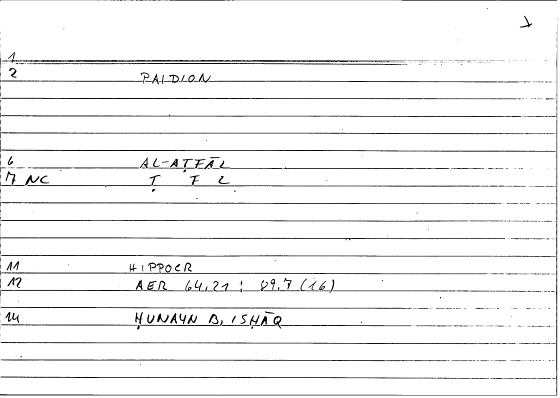 1
2 PAIDION
6 AL-AṬFĀL
7 NC Ṭ F L
11 HIPPOCR
12 AER 64,21 : 89,7 (16)
14 ḤUNAYN B. ISḤĀQ